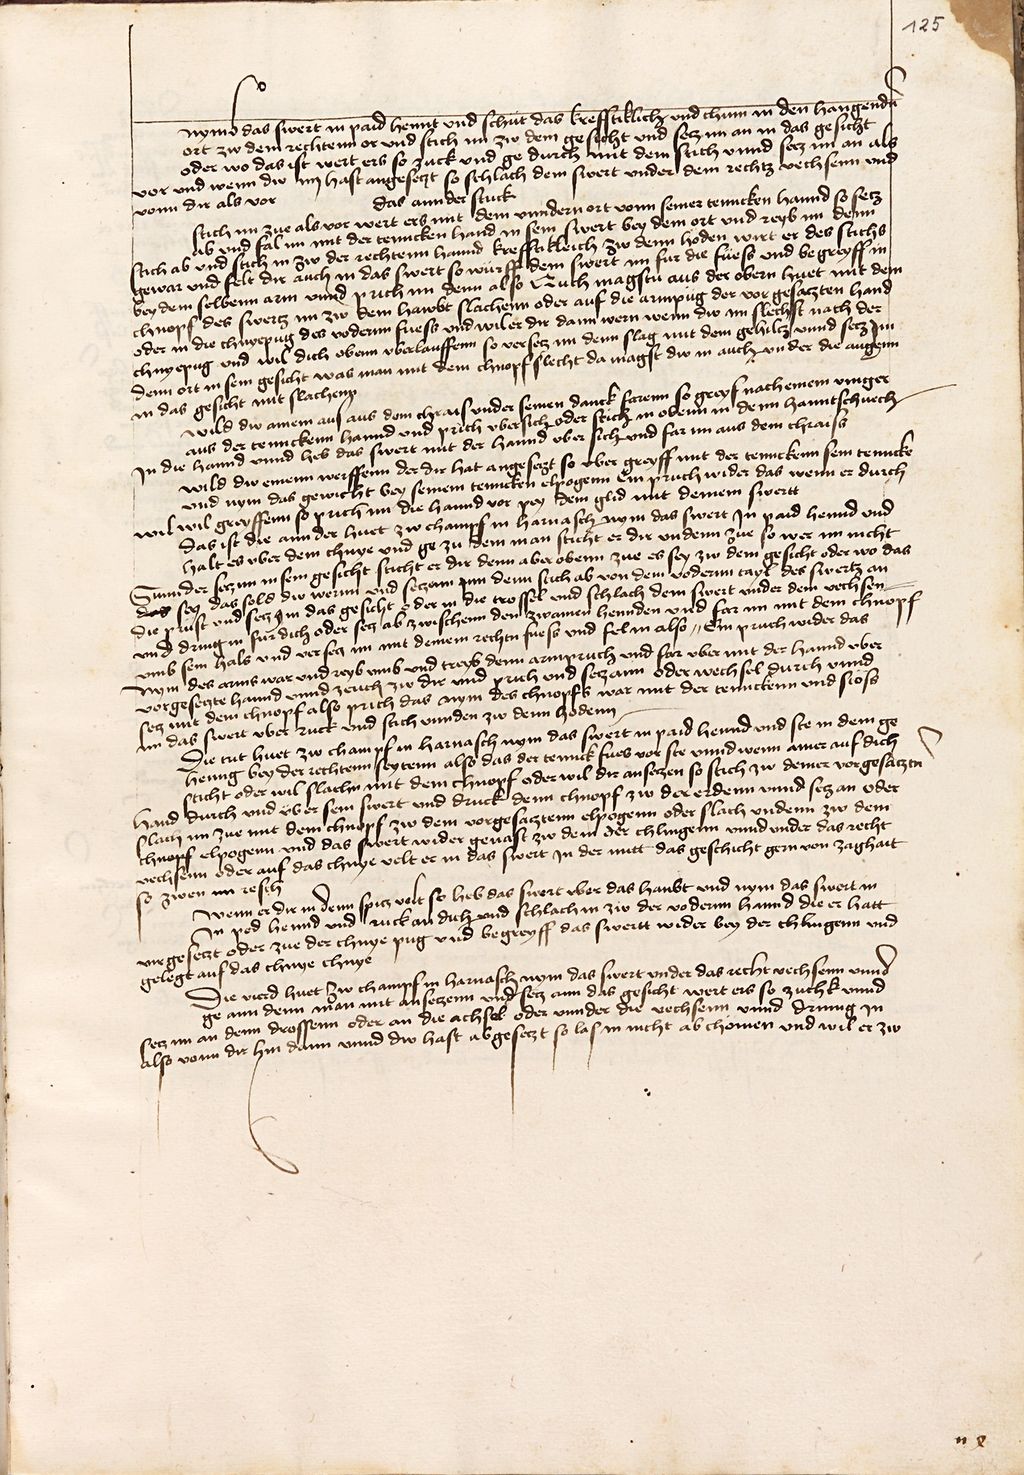 125
nymb das swert in paid hennt und schut das krefftiklich und chum in den hangendn
ort zw dem rechtenn or und stich im zw dem gesicht und secz im an in das gesicht
oder wo das ist wert ers so zuck und ge durch mit dem stich unnd secz im an als
vor und wenn dw im hast angesetzt so schlach dem swert under dem rechtz vechsenn und
vonn dir als vor das annder stuck
stich im zue als vor wert ers mit dem unndern ort vonn seiner tenncken hannd so setz
ab und fal im mit der tenncken hand in sein swert bey dem ort und reyb im denn
stich ab und stich in zw der rechtenn hannd krefftikleich zw denn hoden wirt er des stichs
gewar und felt dir auch in das swert so würff dem swert im für die füess und begreyff in
bey dem selbenn arm unnd prich im denn also Auch magstu aus der obern huet mit dem
chnopf des swertz im zw dem hawbt slachenn oder auf die armpüg der vor gesatzten hand
oder in die chnyepug des vodernn fuess und wil er dir dann wern wenn dw im slechst nach der
chnyepug und wil dich obenn uberlauffenn so versecz im denn slag mit dem gehiltz unnd secz Im
denn ort in sein gesicht was man mit dem chnopf slecht da magst dw in auch under die augenn
in das gesicht mit slachenn
Wild dw ainem aus dem chrais under seinen danck farenn so greyf nach einem vinger
aus der tennckenn hannd und prich ubersich oder stich in obenn in denn hanntschuech
In die hannd unnd heb das swert mit der hannd uber sich und far im aus dem chraiss
Wild dw einenn werffenn der dir hat angesetzt so uber greyff mit der tennckenn sein tenncke
und nym das gewicht bey seinem tenncken elpogenn Ein pruch wider das wenn er durch
wil wil greyffenn so prich im die hannd vor pey dem glid mit deinem swertt
Das ist die annder huet zw champf in harnasch nym das swert In paid hennd und
halt es uber dem chnye und ge zu dem man sticht er dir undenn zue so wer im nicht
Sunnder secz im in sein gesicht sticht er dir denn aber obenn zue es sey zw dem gesicht oder wo das
sey das sold dw wernn und secz im denn stich ab von dem vodernn tayl des swertz an
die prust und secz Im in das gesicht oder in die trossel und schlach dem swert under dem vechsen
unnd dring in für dich oder secz ab zwischenn den zwainen hennden und far im mit dem chnopf
umb sein hals und versecz im mit deinem rechtn fuess und fel in also Ein pruch wider das
Nym des arms war und reyb umb und treyb denn armpruch und far uber mit der hannd uber
vorgesetzte hannd unnd zeuch zw dir und prich und secz ann oder wechsel durch unnd
secz mit dem chnopf also prich das nym des chnopfs war mit der tennckenn und stoss
im das swert uber ruck und stich unnden zw denn hodenn
Die trit huet zw champf in harnasch nym das swert in paid hennd und ste in dem ge
henng bey der rechtenn seytenn also das der tennck fues vor ste unnd wenn ainer auf dich
sticht oder wil slachn mit dem chnopf oder wil dir ansetzen so stich zw deiner vorgesatztn
hand durch und über sein swert und druck denn chnopf zw der erdenn unnd secz an oder
slach im zue mit dem chnopf zw dem vorgesatztenn elpogenn oder slach undenn zw dem
chnopf elpogenn und das swert wider gevast zw dem der chlingenn unnd under das recht
vechsenn oder auf das chnye velt er in das swert In der mitt das geschicht gern von zaghait
so zwen im resch
Wenn er dir in denn spitz volt so heb das swert uber das haubt und nym das swert in
In ped hennd und ruck an dich und schlach in zw der voderm hannd die er hatt
vor gesetzt oder zue der chnye pug und begreyff das swertt wider bey der chlingenn und
gelegt auf das chnye chnye
Die vierd huet zw champf in harnasch nym das swert under das recht vechsenn unnd
ge ann denn man mit ansetzenn und secz ann das gesicht wert ers so zuchk unnd
secz im an denn drossenn oder an die achsel oder unnder die vechsenn unnd dring in
also vonn dir hin dann unnd dw hast abgesetzt so las in nicht ab chomen und wil er zw